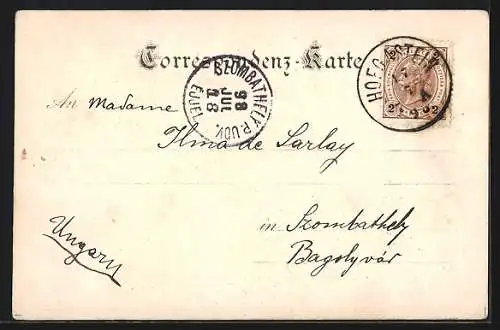 Correspondenz-Karte
HOFGASTEIN
SZOMBATHELY P. UDV.
98
JUL
18
ÉJJEL
An Madame
Ilma de Sarlay
in Szombathely
Bagolyvár
Ungarn